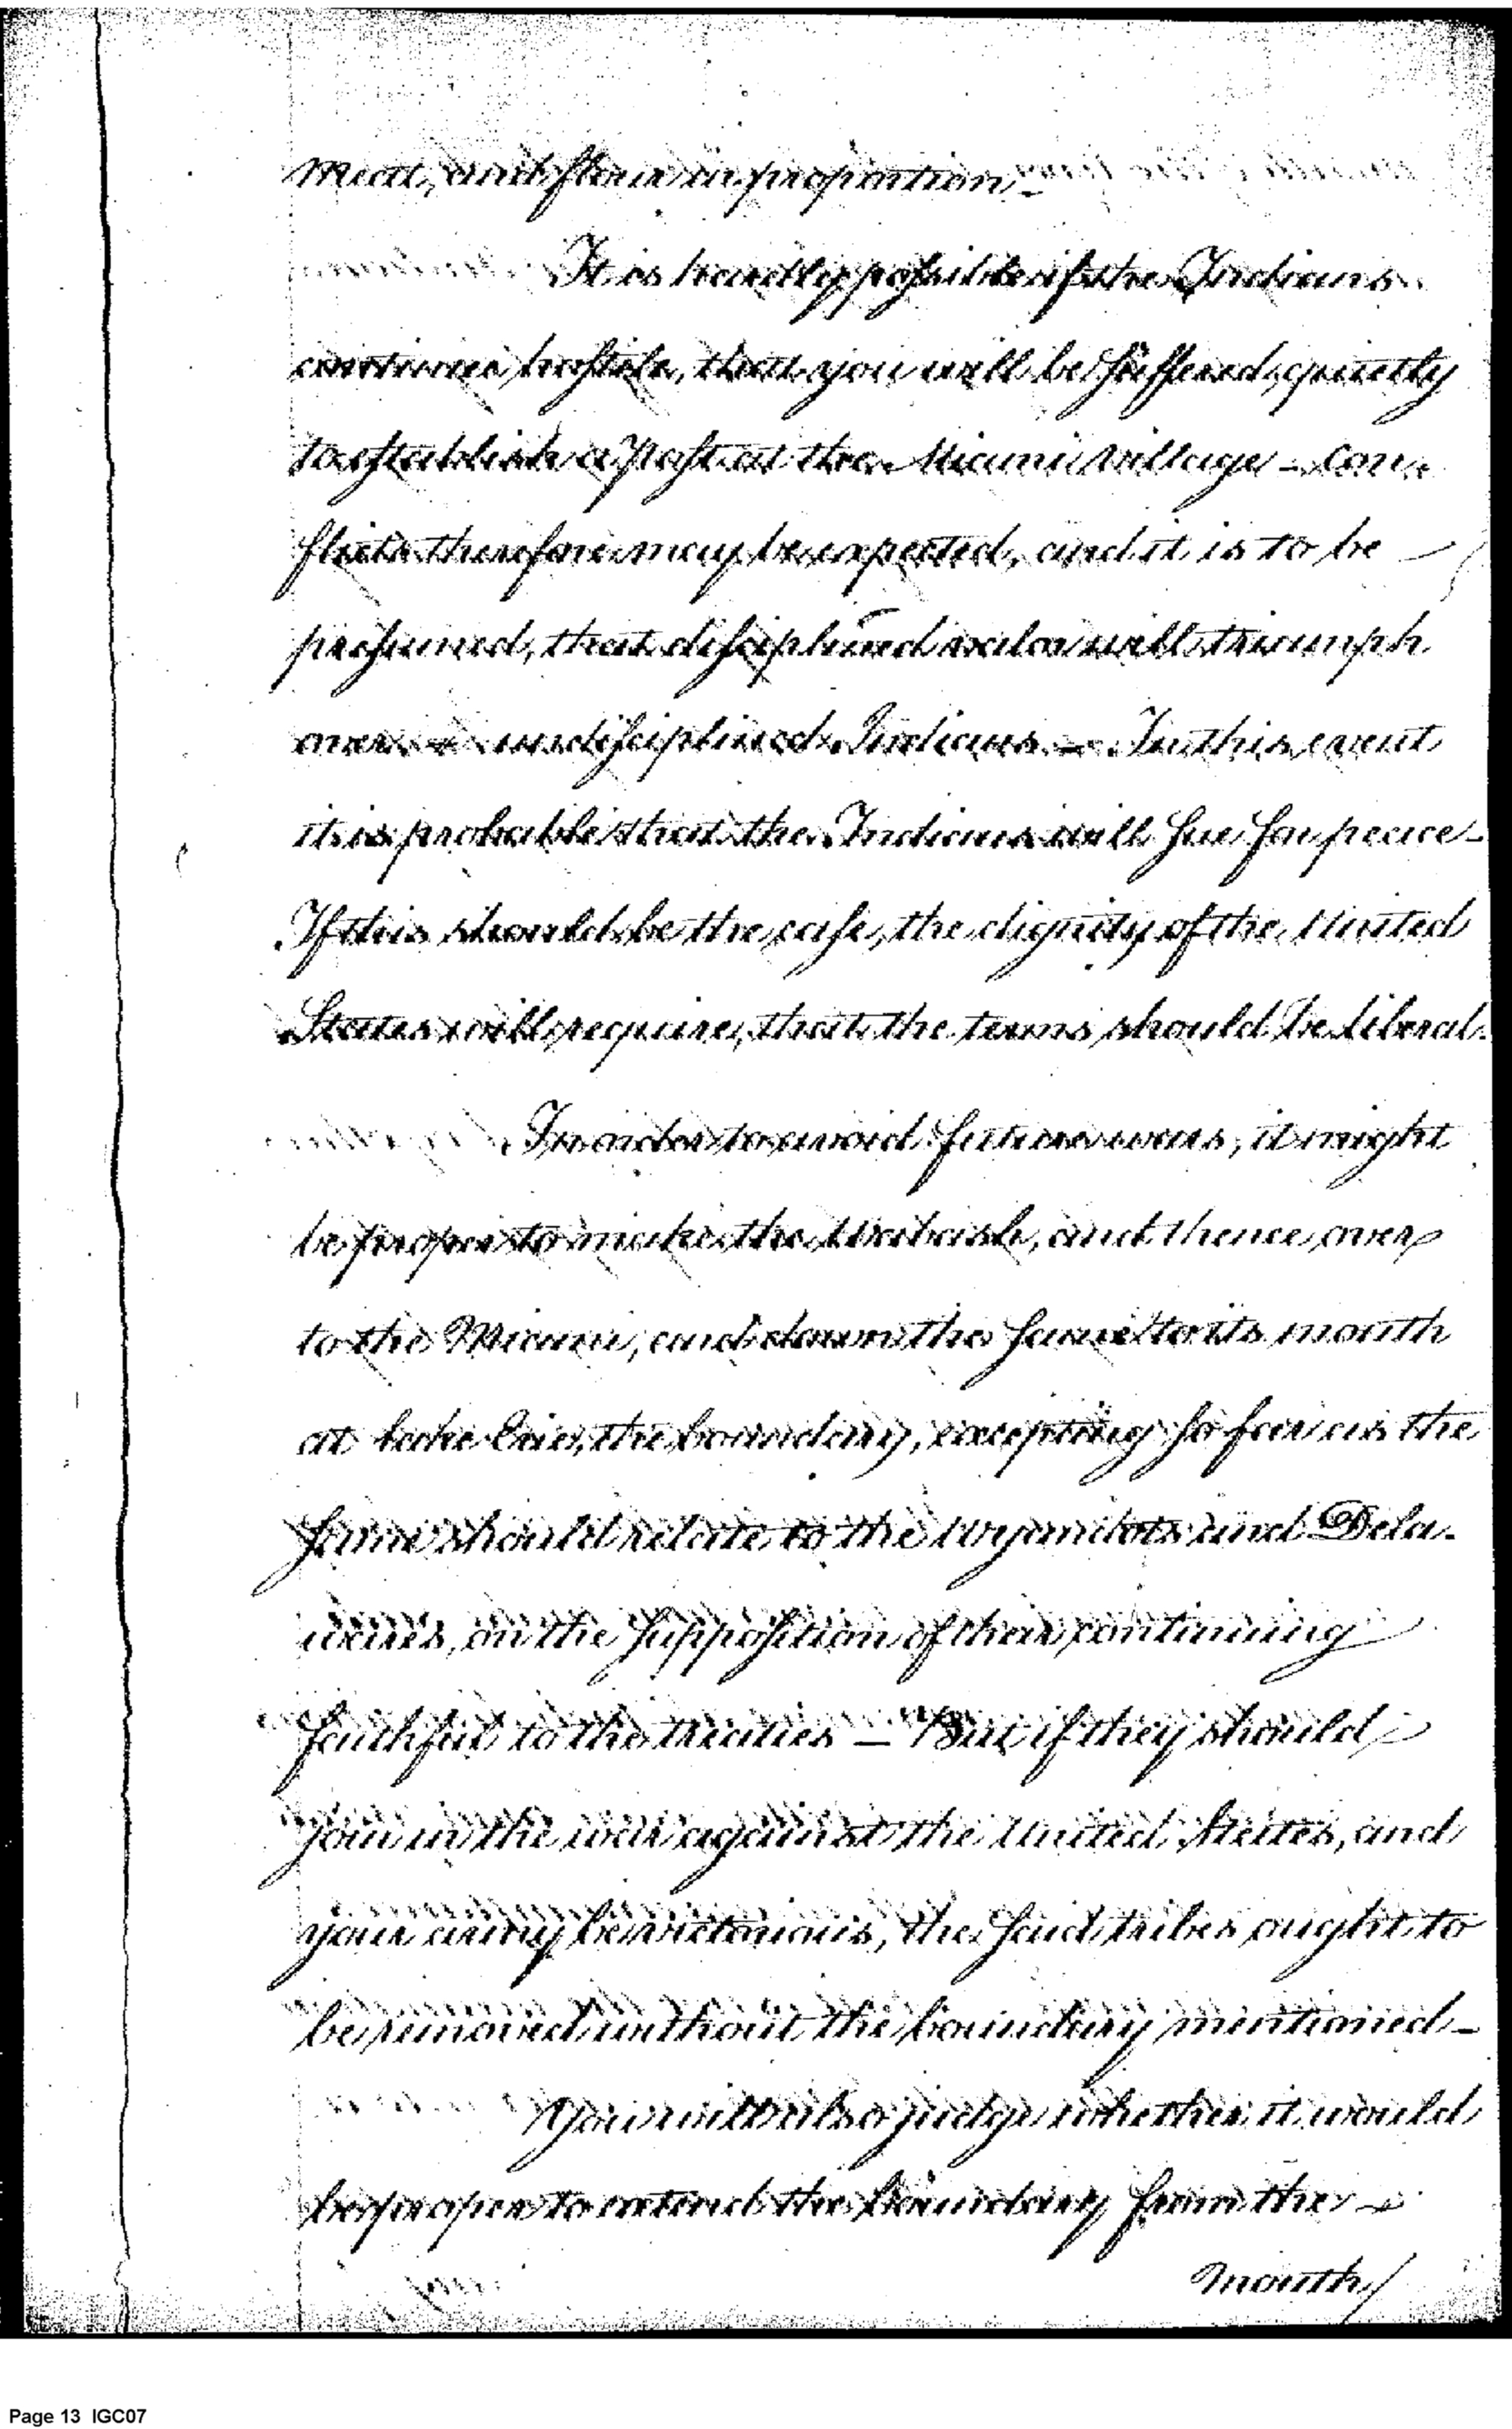 meat, and flour in proportion_
It is hardly possible if the Indians
continue hostile, that you will be suffered, quietly
to establish a Post at the Miami Village – Con-
flicts therefore may be expected, and it is to be –
presumed, that disciplined valor will triumph
over – undisciplined Indians – In this event
it is probable that the Indians will sue for peace –
If this should be the case, the dignity of the United
States will require, that the terms should be liberal.
In order to avoid future wars, it might
be proper to make the Wabash, and thence over
to the Miami, and down the same to its mouth
at Lake Erie, the boundary, excepting so far as the
same should relate to the Wyandots and Dela-
wares, on the supposition of their continuing
faithful to the treaties – But if they should –
join in the war against the United States, and
your army be victorious, the said tribes ought to
be removed without the boundary mentioned –
You will also judge whether it would
be proper to extend the boundary from the –
mouth/
Page 13 IGC07